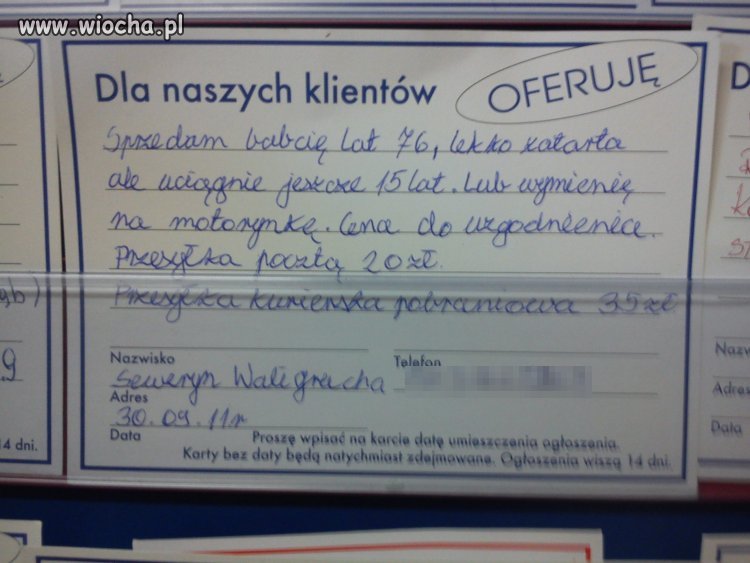 www.wiocha.pl
Dla naszych klientów
OFERUJĘ
Sprzedam babcię lat 76, lekko zatarta
ale uciągnie jeszcze 15 lat. Lub wymienię
na motorynkę. Cena do uzgodnienia.
Przesyłka pocztą 20 zł.
Przesyłka kurierska pobraniowa 35 zł
Nazwisko
Telefon
Seweryn
Adres
30.09.11r
Data
Proszę wpisać na karcie datę umieszczenia ogłoszenia.
Karty bez daty będą natychmiast zdejmowane. Ogłoszenia wiszą 14 dni.
gb)
9
14 dni.
D
Nazw
Adres
Data